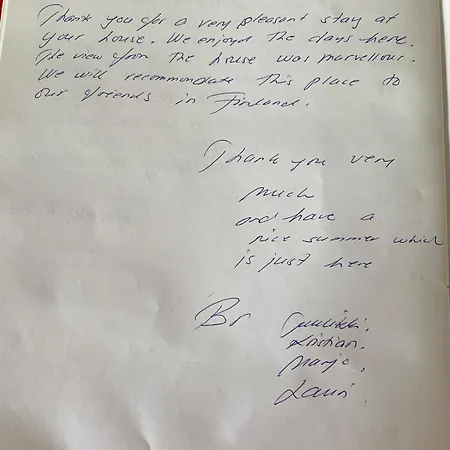 Thank you for a very pleasant stay at
your house. We enjoyd the days here.
The view from the house was marvellous.
We will recommendate this place to
our friends in Finland.
Thank you very
much
and have a
nice summer which
is just here
Br
Kristian,
Marjo,
Lauri.